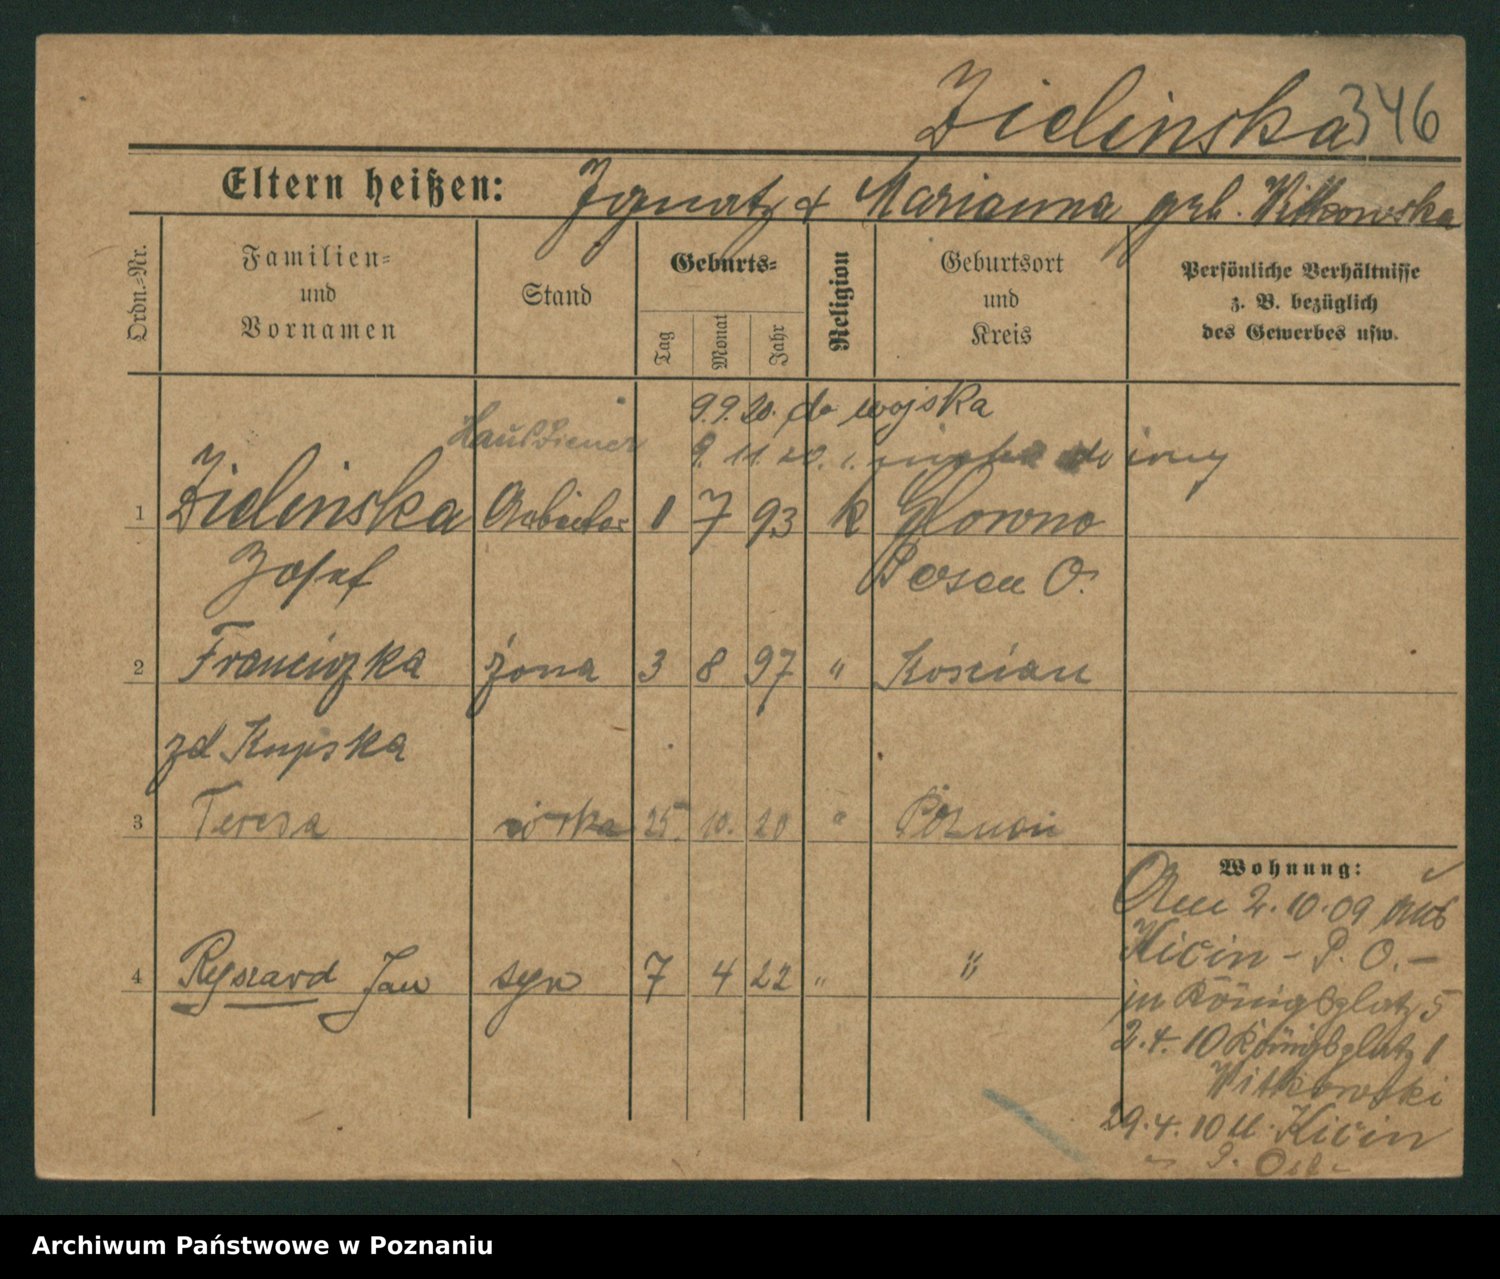 Zielinska 346
Eltern heißen: Ignatz & Marianna geb. Witkowska
Ordn.-Nr.
Familien= und Vornamen
Stand
Geburts=
Tag
Monat
Jahr
Religion
Geburtsort und Kreis
Persönliche Verhältnisse z. B. bezüglich des Gewerbes usw.
9.9.20. do wojska
Hausdiener
9. 11. 20. z.
1 Zielinska Arbeiter 1 7 93 k Glowno
Josef Posen O.
2 Franciszka żona 3 8 97 " Koscian
zd Kupska
3 Teresa córka 25. 10. 20 " Poznań
Wohnung:
Am 2.10.09 aus
Kicin - P. O. -
in Königsplatz 5
2.4.10 Königsplatz 1
Witkowski
29.4.10 n. Kicin
P. Ost
4 Ryszard Jan syn 7 4 22 " "
Archiwum Państwowe w Poznaniu